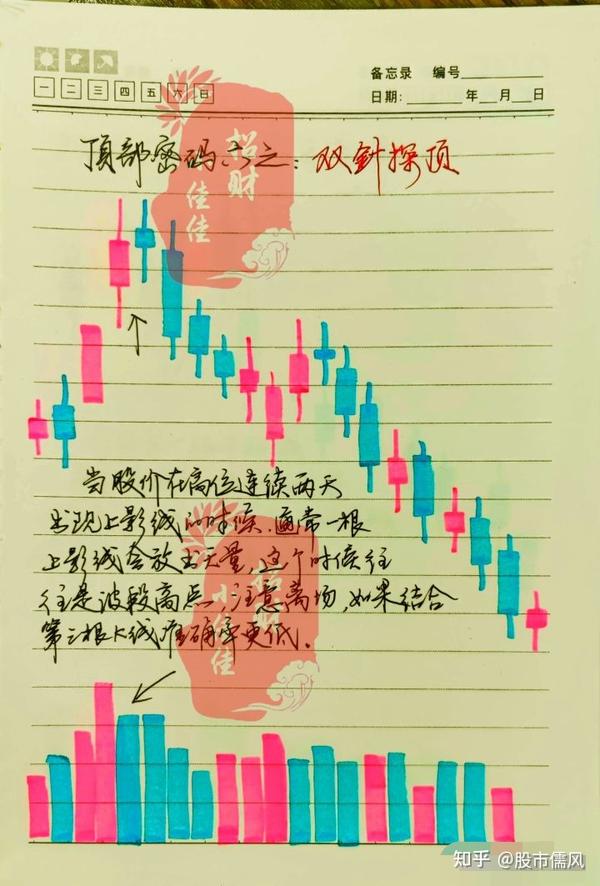 备忘录 编号
一 二 三 四 五 六 日
日期: 年 月 日
顶部密码 之: 双針探顶
招财
小佳佳
当股价在高位连续两天
出现上影线的时候.通常一根
上影线会放出天量,这个时候往
往是波段高点,注意离场,如果结合
第三根K线准确率更低.
招财
小佳佳
知乎 @股市儒风